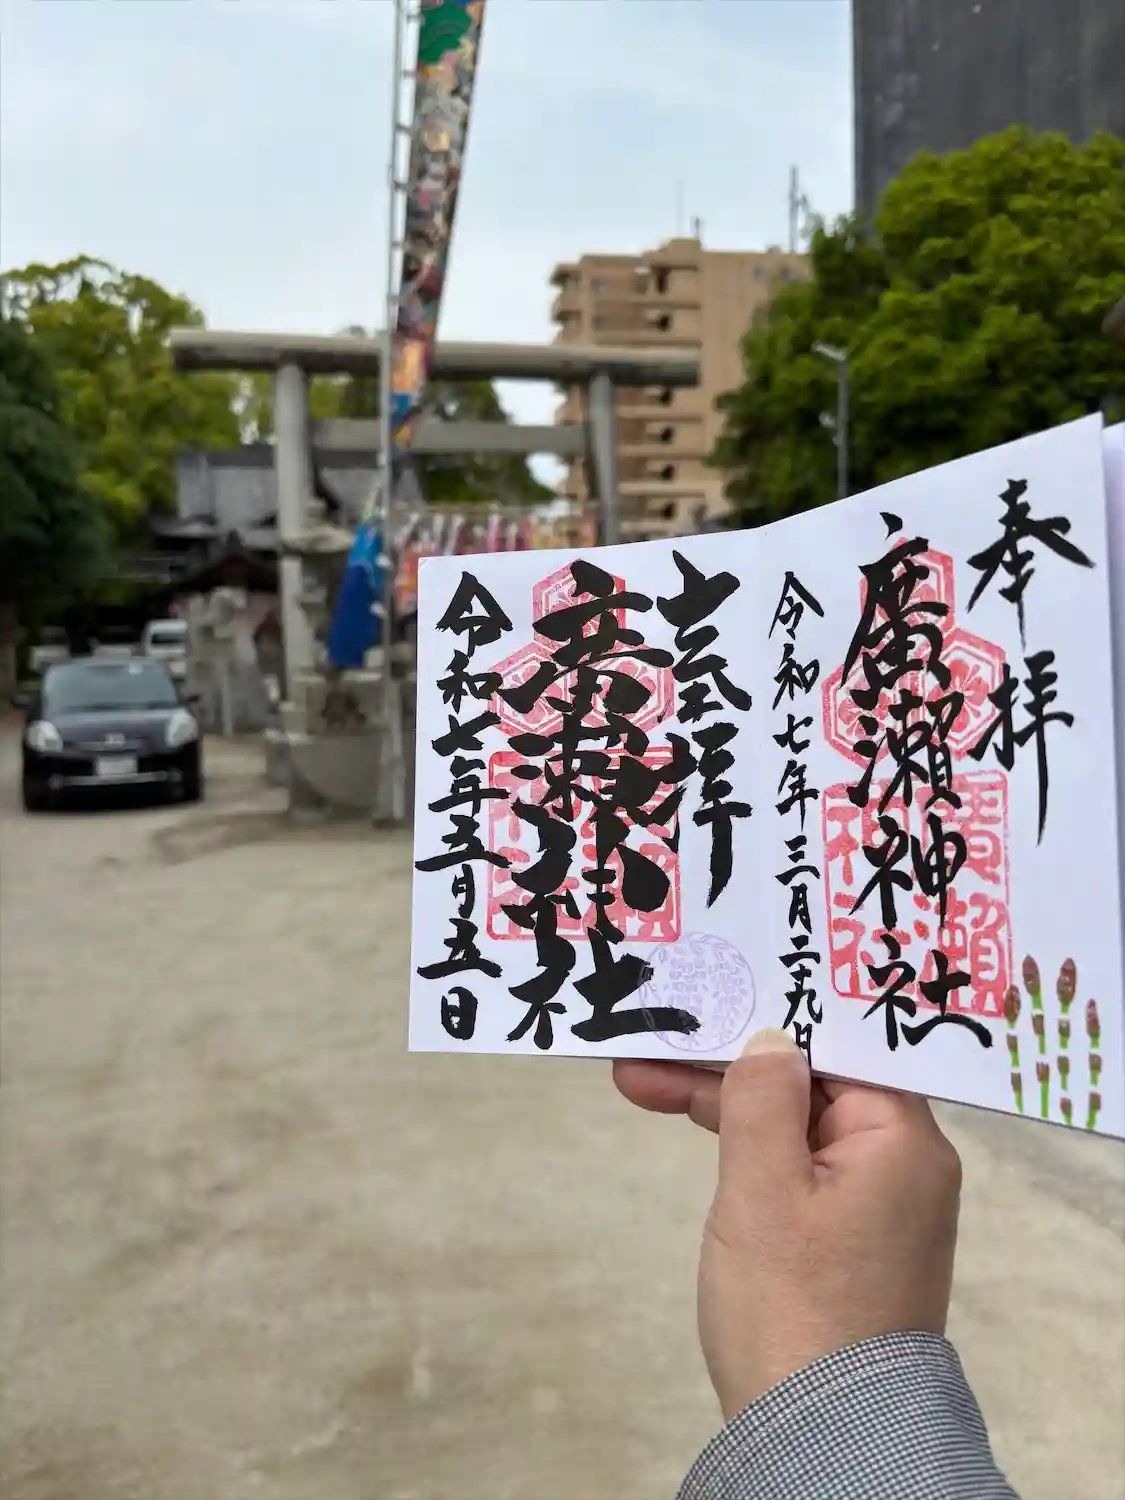 奉拝
廣瀬神社
令和七年三月二十九日
奉拝
廣瀬神社
令和七年五月五日